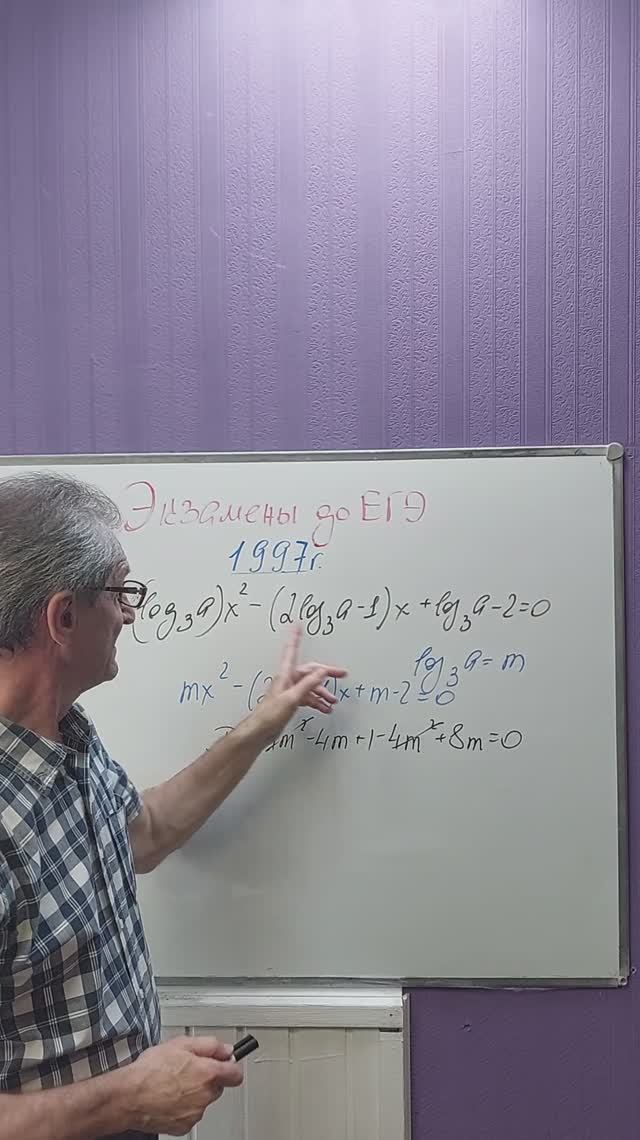 Экзамены до ЕГЭ
1997г.
(log₃a)x² - (2log₃a-1)x + log₃a-2=0
log₃a = m
mx² - (2 )x + m-2=0
4m² - 4m + 1 - 4m² + 8m = 0